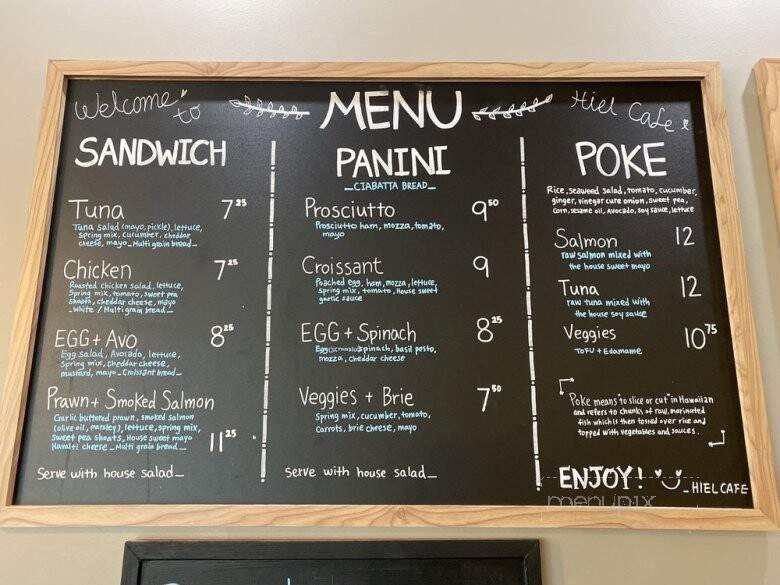 Welcome to
MENU
Hiel Cafe
SANDWICH
Tuna 7²⁵
Tuna salad (mayo, pickle), lettuce,
Spring mix, Cucumber, cheddar
cheese, mayo_Multi grain bread_
Chicken 7²⁵
Roasted chicken salad, lettuce,
Spring mix, tomato, sweet pea
shoots, cheddar cheese, mayo
_White / Multigrain bread_
EGG + Avo 8²⁵
Egg salad, Avocado, lettuce,
Spring mix, Cheddar cheese,
mustard, mayo_Croissant bread_
Prawn + Smoked Salmon
Garlic buttered prawn, smoked salmon
(olive oil, parsley), lettuce, spring mix,
Sweet pea shoats, House sweet mayo
Havalti cheese_Multi grain bread_ 11²⁵
Serve with house salad_
PANINI
_CIABATTA BREAD_
Prosciutto 9⁵⁰
Prosciutto ham, mozza, tomato,
mayo
Croissant 9
Poached egg, ham, mozza, lettuce,
Spring mix, tomato, House sweet
garlic sauce
EGG + Spinach 8²⁵
spinach, basil pesto,
mozza, cheddar cheese
Veggies + Brie 7⁵⁰
Spring mix, cucumber, tomato,
Carrots, brie cheese, mayo
Serve with house salad_
POKE
Rice, seaweed salad, tomato, cucumber,
ginger, vinegar cure onion, sweet pea,
Corn, sesame oil, Avocado, soy sauce, lettuce
Salmon 12
raw salmon mixed with
the house sweet mayo
Tuna 12
raw tuna mixed with
the house soy sauce
Veggies 10⁷⁵
TOFU + Edamame
"Poke means "to slice or cut" in Hawaiian
and refers to chunks of raw, marinated
fish which is then tossed over rice and
topped with vegetables and sauces.
ENJOY! _HIEL CAFE
menupix